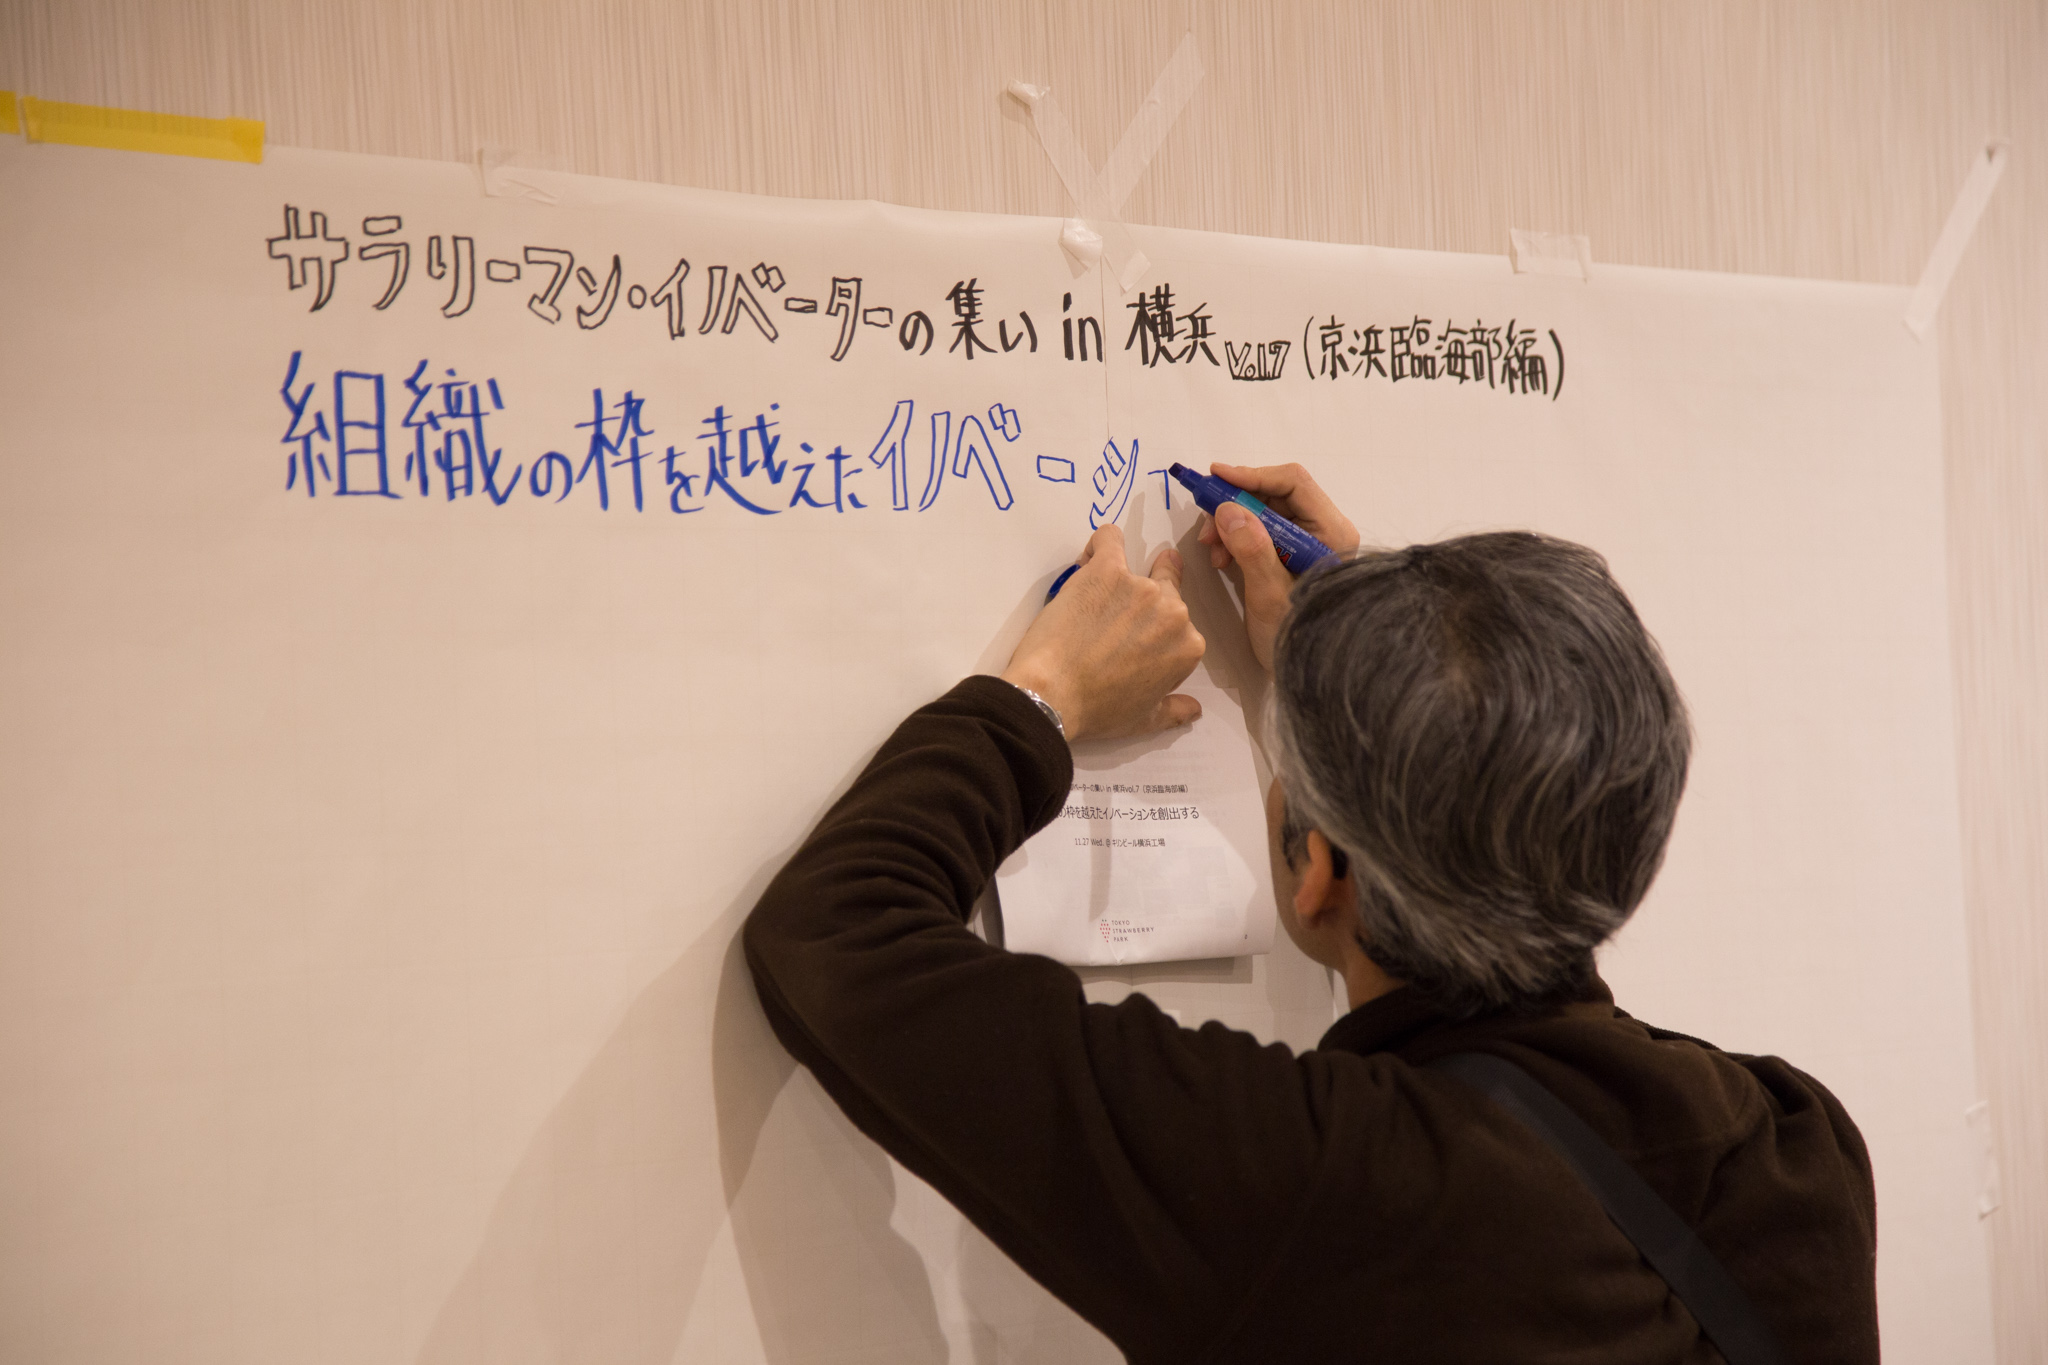 サラリーマン・イノベーターの集い in 横浜 Vol.7 (京浜臨海部編)
組織の枠を越えたイノベーシ
ベーターの集い in 横浜vol.7（京浜臨海部編）
の枠を越えたイノベーションを創出する
11.27 Wed. @ キリンビール横浜工場
TOKYO
STRAWBERRY
PARK